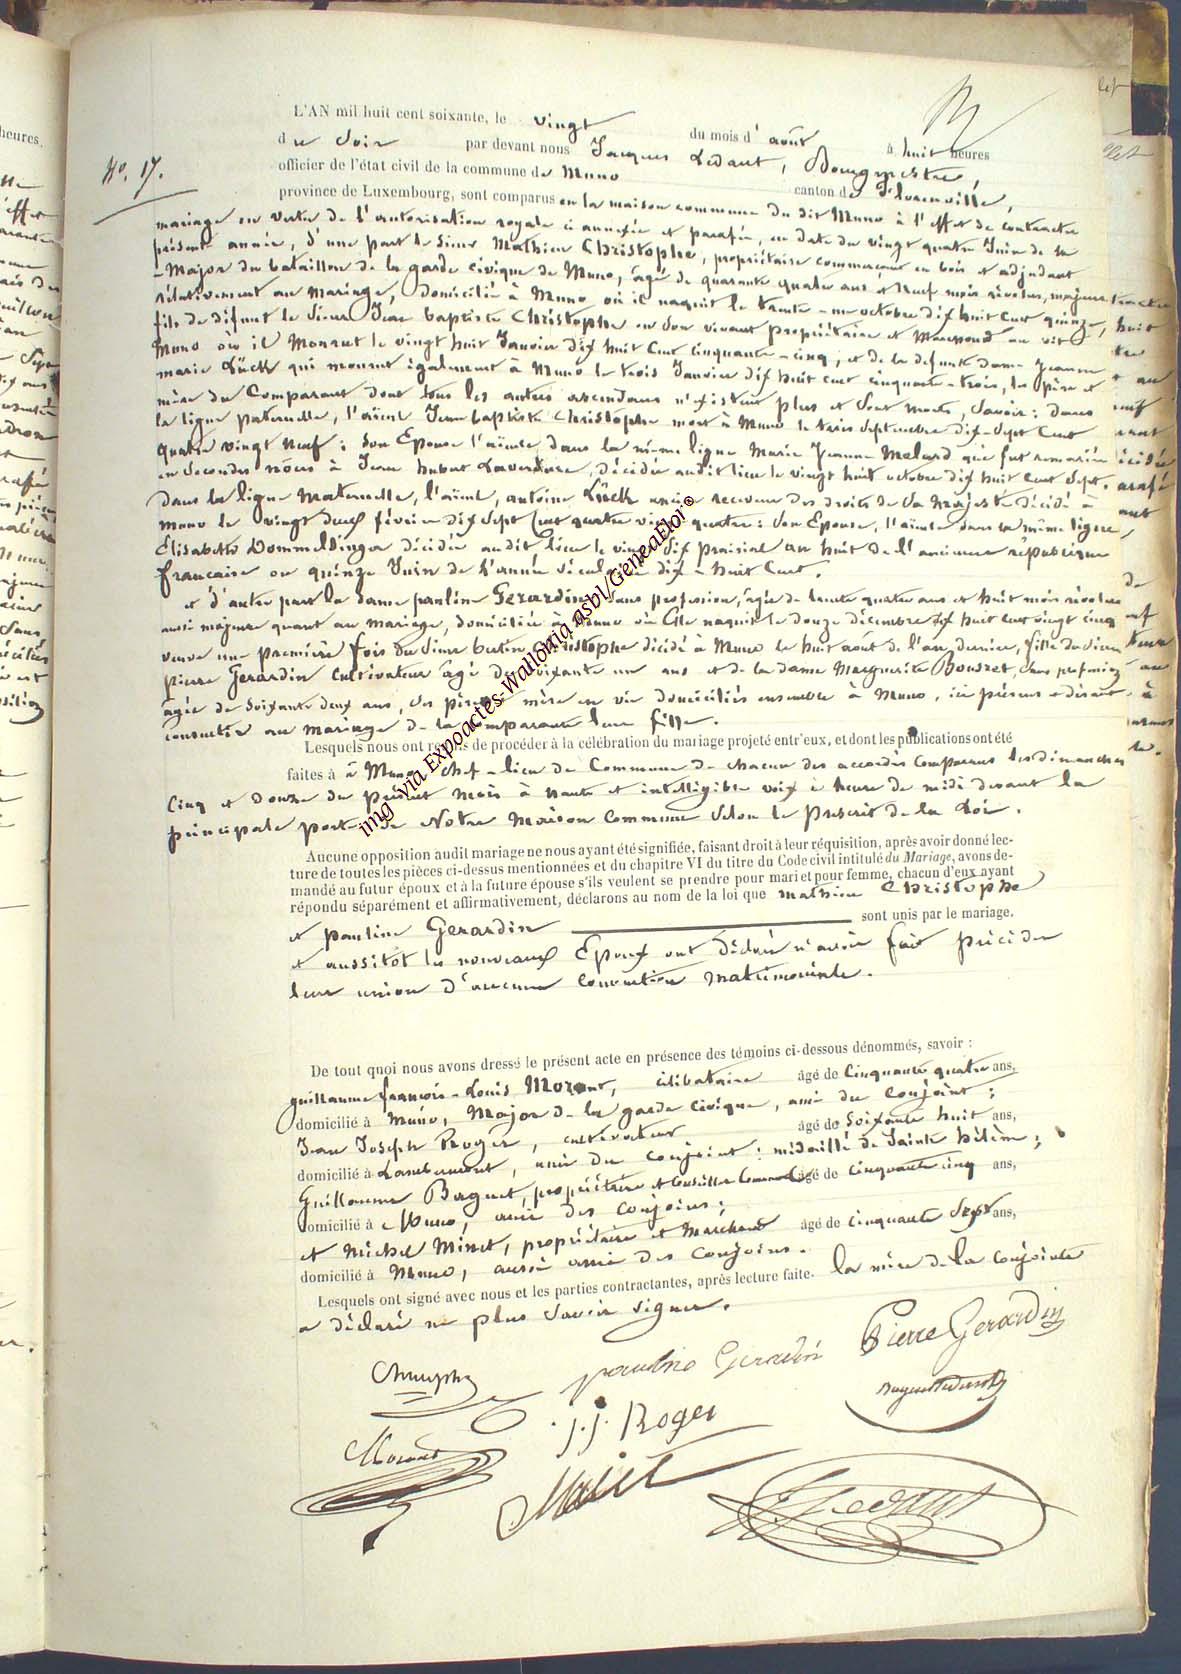 No. 17.
L'AN mil huit cent soixante, le vingt du mois d'août à huit heures
du soir par devant nous Jacques Ledant, Bourgmestre,
officier de l'état civil de la commune de Muno canton de Florenville,
province de Luxembourg, sont comparus en la maison commune du dit Muno à l'effet de contracter
mariage en vertu de l'autorisation royale ci annexée et parafée, en date du vingt quatre Juin de la
présente année, d'une part le sieur Mathieu Christophe, propriétaire commerçant en bois et adjudant
-Major du bataillon de la garde civique de Muno, âgé de quarante quatre ans et neuf mois révolus, majeur
rélativement au mariage, domicilié à Muno où il naquit le trente-un octobre dix huit cent quinze,
fils de défunt le sieur Jean baptiste Christophe en son vivant propriétaire et Marchand au dit
Muno où il Mourut le vingt huit Janvier dix huit cent cinquante-cinq; et de la défunte dame Jeanne
marie Lück qui mourut également à Muno le trois Janvier dix huit cent cinquante-trois, les père et
mère du Comparant dont tous les autres ascendans n'existent plus et sont morts, Savoir: dans
la ligne paternelle, l'aïeul Jean baptiste Christophe mort à Muno le trois septembre dix-sept cent
quatre vingt neuf; son Epouse l'aïeule dans la même ligne Marie Jeanne Melard qui fut remariée
en secondes nôces à Jean hubert Laverdure, décédée audit lieu le vingt huit octobre dix huit cent sept.
Dans la ligne Maternelle, l'aïeul, antoine Lück ancien receveur des droits de Sa Majesté décédé à
Muno le vingt deux février dix sept cent quatre vingt quatre: son Epouse, l'aïeule dans la même ligne,
Elisabeth Dommeldinger décédée audit lieu le vingt six prairial an huit de l'ancienne république
française ou quinze Juin de l'année séculaire dix-huit cent.
et d'autre part la dame pauline Gerardin sans profession, âgée de trente quatre ans et huit mois révolus
aussi majeure quant au mariage, domiciliée à Muno où Elle naquit le douze décembre dix huit cent vingt cinq
veuve une première fois du sieur Christophe décédé à Muno le huit aout de l'an dernier, fille du sieur
pierre Gerardin cultivateur âgé de soixante un ans et de la dame Marguerite Bousret, sans profession
âgée de soixante deux ans, ses père et mère en vie domiciliés ensemble à Muno, ici présens et disant
consentir au mariage de la Comparante leur fille.
Lesquels nous ont requis de procéder à la célébration du mariage projeté entr'eux, et dont les publications ont été
faites à à Muno chef-lieu de Commune de chacun des accordés comparus les dimanches
Cinq et Douze du présent mois à haute et intelligible voix à heure de midi devant la
principale porte de Notre Maison Commune selon le Prescrit de la Loi.
Aucune opposition audit mariage ne nous ayant été signifiée, faisant droit à leur réquisition, après avoir donné lec-
ture de toutes les pièces ci-dessus mentionnées et du chapitre VI du titre du Code civil intitulé du Mariage, avons de-
mandé au futur époux et à la future épouse s'ils veulent se prendre pour mari et pour femme, chacun d'eux ayant
répondu séparément et affirmativement, déclarons au nom de la loi que Mathieu Christophe
et pauline Gerardin sont unis par le mariage.
et aussitôt les nouveaux Epoux ont déclaré n'avoir fait précéder
leur union d'aucune convention matrimoniale.
De tout quoi nous avons dressé le présent acte en présence des témoins ci-dessous dénommés, savoir :
guillaume françois-Louis Morant, célibataire âgé de Cinquante quatre ans,
domicilié à Muno, Major de la garde civique, ami du conjoint;
Jean Joseph Roger, cultivateur âgé de soixante huit ans,
domicilié à Lambermont, ami du conjoint: médaillé de Sainte hélène;
Guillaume Baguet, propriétaire et Conseiller Communal âgé de cinquante cinq ans,
domicilié à Muno, ami des conjoins;
et Michel Minet, propriétaire et Marchand âgé de cinquante sept ans,
domicilié à Muno, aussi ami des conjoins.
Lesquels ont signé avec nous et les parties contractantes, après lecture faite. la mère de la conjointe
a déclaré ne plus savoir signer.
pauline Gerardin
Pierre Gerardin
J.J. Roger
Morant
Minet
J. Ledant
img via Expoactes-Wallonia asbl/GeneaFlor©